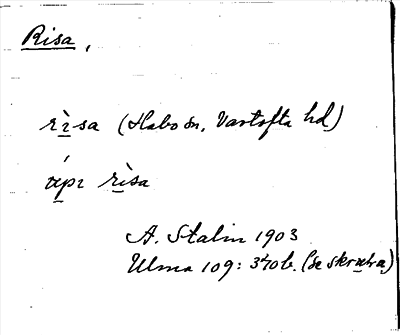 Risa,
rìsa (Habo sn, Vartofta hd)
rìsa
A. Stalin 1903
Ulma 109: 370b. (se skratta)